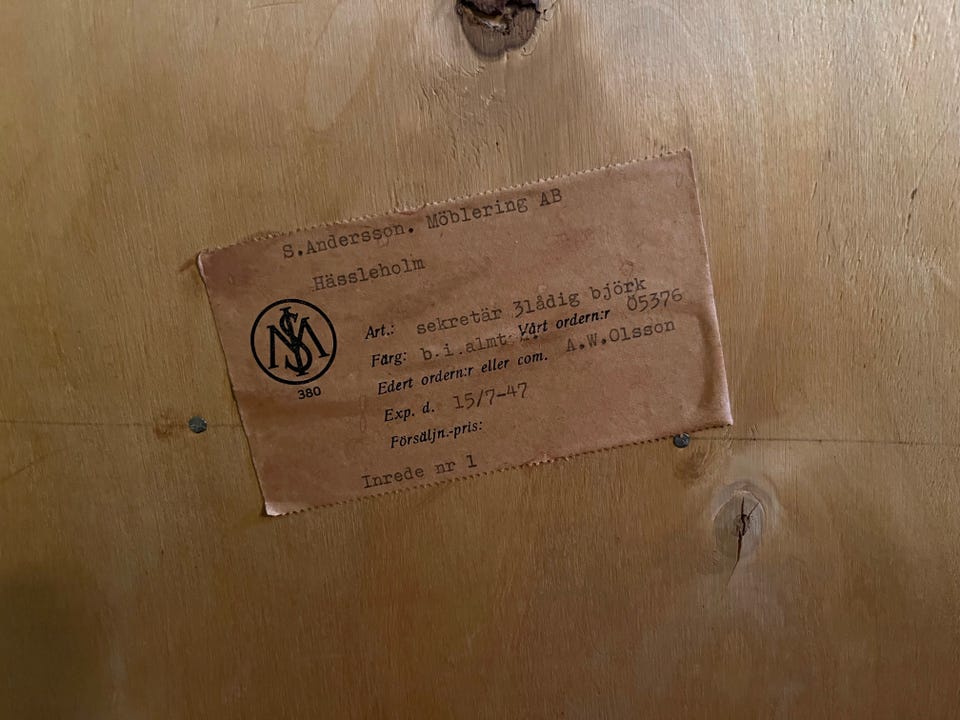 S.Andersson. Möblering AB
Hässleholm
Art.: sekretär 3lådig björk
Färg: b.i.almt Vårt ordern:r 05376
Edert ordern:r eller com. A.W.Olsson
Exp. d. 15/7-47
Försäljn.-pris:
Inrede nr 1
SM
380